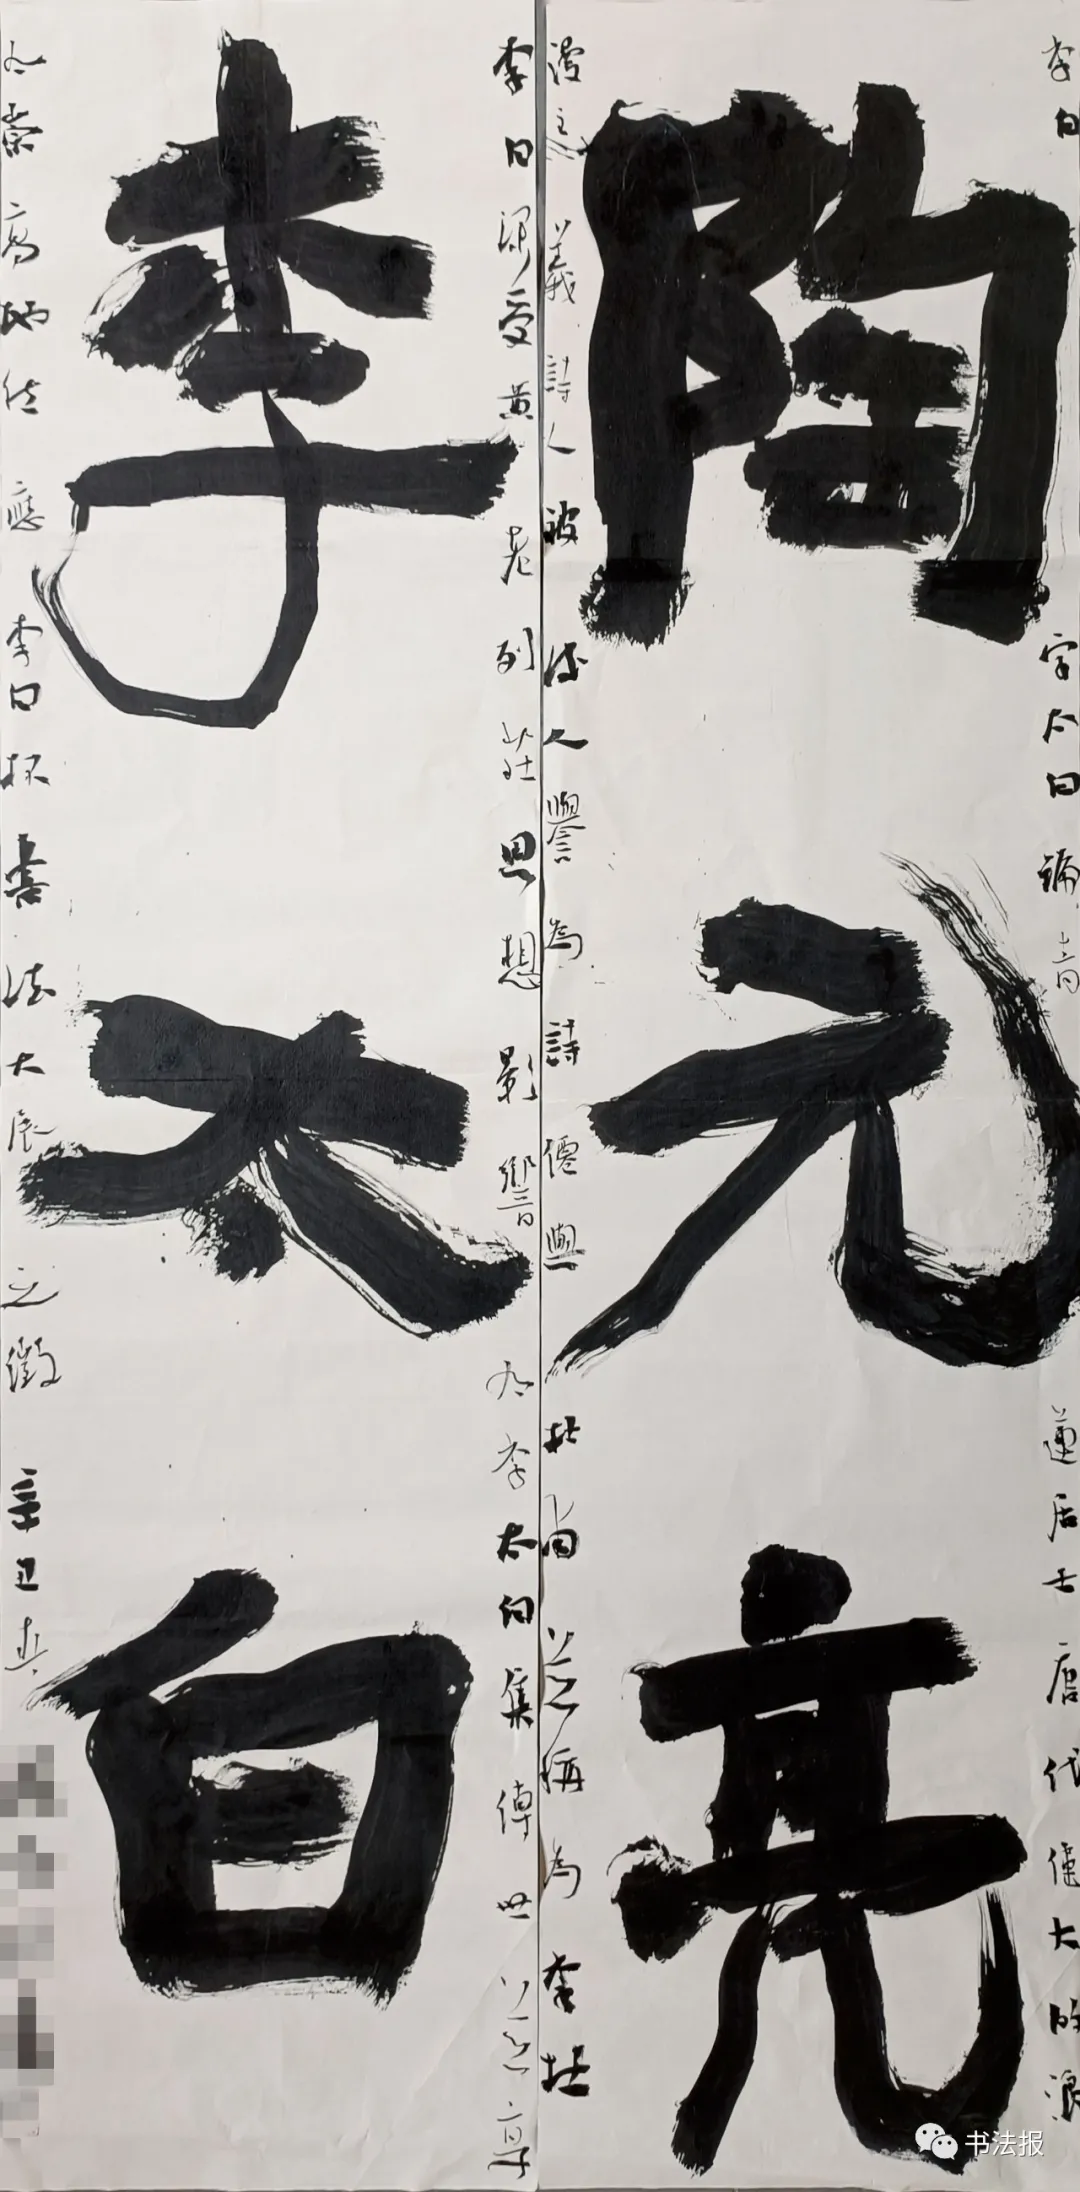 陶元亮
李太白
李白
字太白 號青
蓮居士 唐代偉大的浪
漫主義詩人 被後人譽為詩僊 與杜甫並稱為李杜
李白深受黃老列莊思想影響 有李太白集傳世 並享
有崇高地位 應李白杯書法大展之徵 辛丑春
书法报